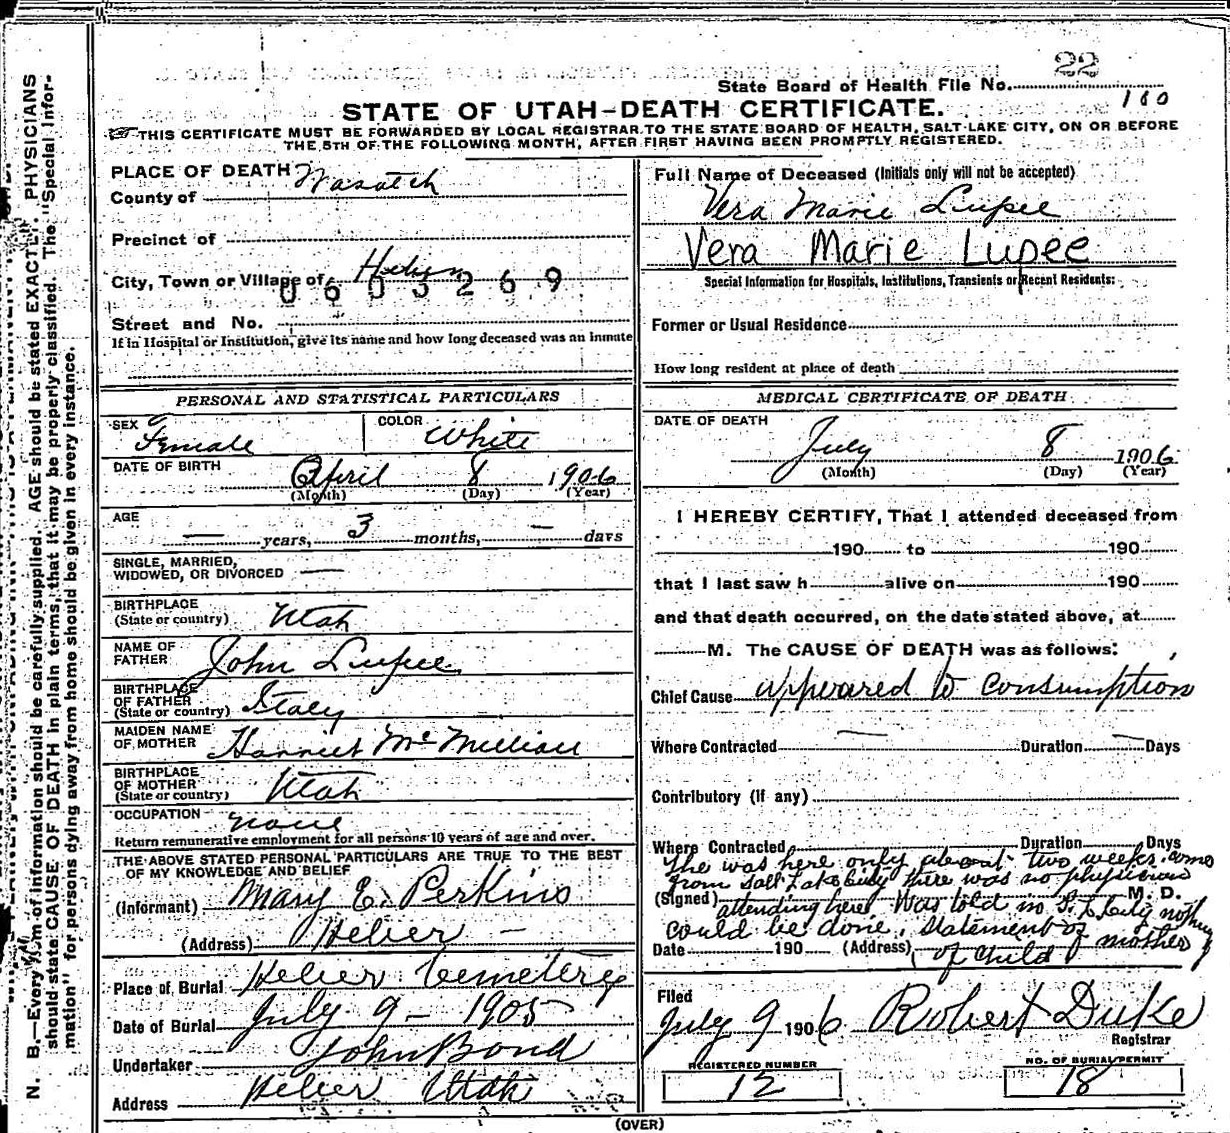 22
State Board of Health File No.
180
STATE OF UTAH—DEATH CERTIFICATE.
THIS CERTIFICATE MUST BE FORWARDED BY LOCAL REGISTRAR TO THE STATE BOARD OF HEALTH, SALT LAKE CITY, ON OR BEFORE
THE 5TH OF THE FOLLOWING MONTH, AFTER FIRST HAVING BEEN PROMPTLY REGISTERED.
PLACE OF DEATH
County of Wasatch
Precinct of
City, Town or Village of Heber
0603269
Street and No.
If in Hospital or Institution, give its name and how long deceased was an inmate
Full Name of Deceased (Initials only will not be accepted)
Vera Marie Lupee
Vera Marie Lupee
Special Information for Hospitals, Institutions, Transients or Recent Residents:
Former or Usual Residence
How long resident at place of death
PERSONAL AND STATISTICAL PARTICULARS
SEX Female COLOR White
DATE OF BIRTH April 8 1906
(Month) (Day) (Year)
AGE — years, 3 months, — days
SINGLE, MARRIED,
WIDOWED, OR DIVORCED —
BIRTHPLACE
(State or country) Utah
NAME OF
FATHER John Lupee
BIRTHPLACE
OF FATHER
(State or country) Italy
MAIDEN NAME
OF MOTHER Harriet
BIRTHPLACE
OF MOTHER
(State or country) Utah
OCCUPATION none
Return remunerative employment for all persons 10 years of age and over.
THE ABOVE STATED PERSONAL PARTICULARS ARE TRUE TO THE BEST
OF MY KNOWLEDGE AND BELIEF
(Informant) Mary E. Perkins
(Address) Heber —
Place of Burial Heber Cemetery
Date of Burial July 9 — 1905
Undertaker John Bond
Address Heber Utah
MEDICAL CERTIFICATE OF DEATH
DATE OF DEATH
July 8 1906
(Month) (Day) (Year)
I HEREBY CERTIFY, That I attended deceased from
190 to 190
that I last saw h alive on 190
and that death occurred, on the date stated above, at
M. The CAUSE OF DEATH was as follows:
Chief Cause appeared to consumption
Where Contracted — Duration — Days
Contributory (if any)
Where Contracted Duration Days
She was here only about two weeks came
from Salt Lake City there was no physician
(Signed) M. D.
attending here Was told in S. L. City nothing
could be done. Statement of mother
Date 190 (Address)
of child
Filed
July 9 1906 Robert Duke
Registrar
REGISTERED NUMBER
12
NO. OF BURIAL PERMIT
18
(OVER)
N. B.—Every item of information should be carefully supplied. AGE should be stated EXACTLY. PHYSICIANS
should state CAUSE OF DEATH in plain terms, that it may be properly classified. The "Special Infor-
mation" for persons dying away from home should be given in every instance.